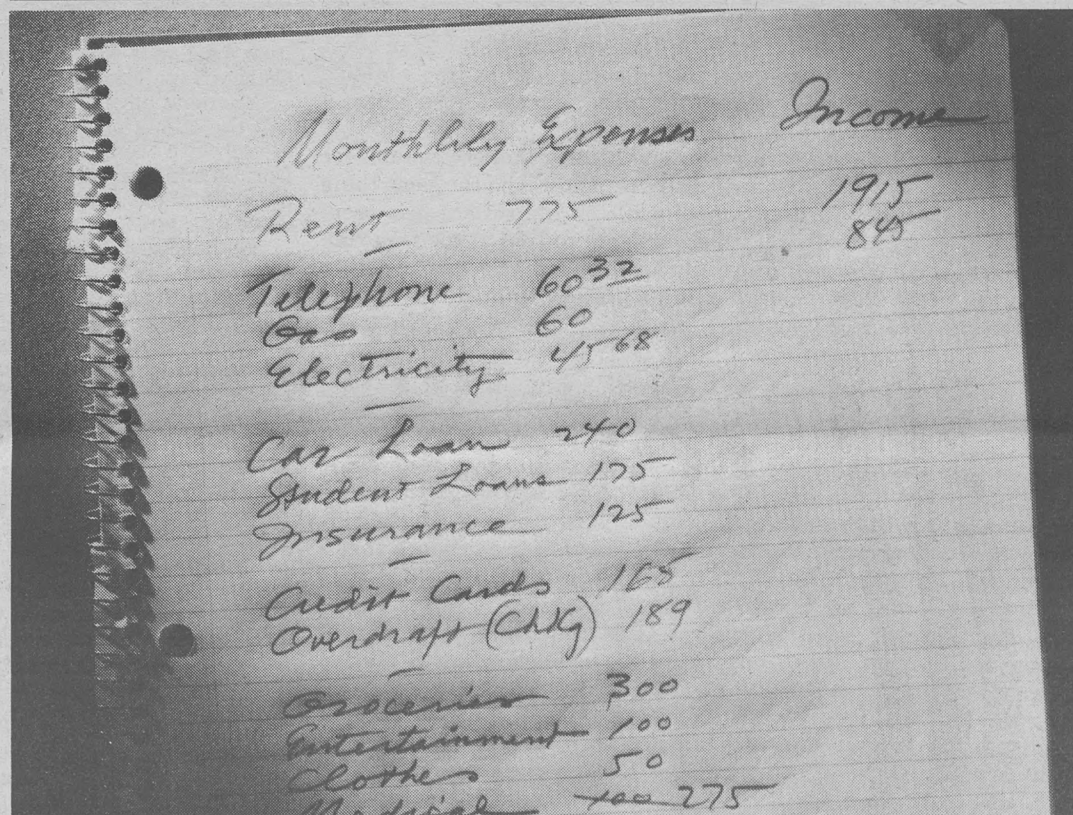 Monthlily Expenses Income
Rent 775 1915
845
Telephone 60 32
Gas 60
Electricity 45 68
Car Loan 240
Student Loans 175
Insurance 125
Credit Cards 165
Overdraft (ChKg) 189
Groceries 300
Entertainment 100
Clothes 50
Medical 100 275